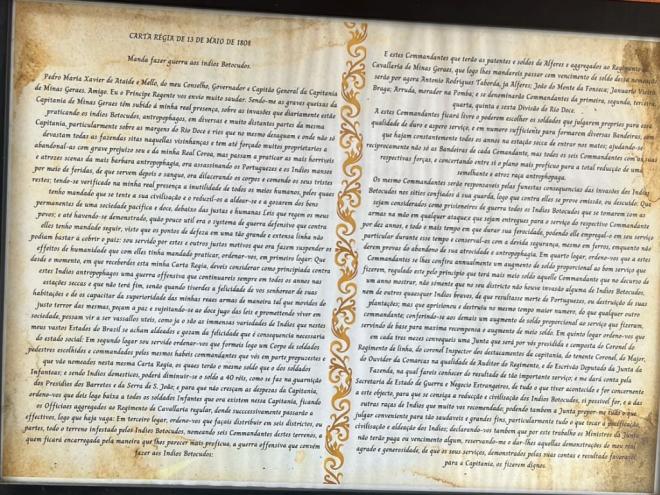 CARTA RÉGIA DE 13 DE MAIO DE 1808
Manda fazer guerra aos indios Botocudos.
Pedro Maria Xavier de Ataide e Mello, do meu Conselho, Governador e Capitão General da Capitania
de Minas Geraes. Amigo. Eu o Principe Regente vos envio muito saudar. Sendo-me as graves queixas da
Capitania de Minas Geraes têm subido á minha real presença, sobre as invasões que diariamente estão
praticando os indios Botocudos, antropophagos, em diversas e muito distantes partes da mesma
Capitania, particularmente sobre as margens do Rio Doce e rios que no mesmo desaguam e onde não só
devastam todas as fazendas sitas naquellas visinhanças e tem até forçado muitos proprietarios a
abandonal-as com grave prejuizo seu e da minha Real Coroa, mas passam a praticar as mais horriveis
e atrozes scenas da mais barbara antropophagia, ora assassinando os Portuguezes e os Indios mansos
por meio de feridas, de que servem depois o sangue, ora dilacerando os corpos e comendo os seus tristes
restos; tendo-se verificado na minha real presença a inutilidade de todos os meios humanos, pelos quaes
tenho mandado que se tente a sua civilisação e o reduzil-os a aldear-se e a gosarem dos bens
permanentes de uma sociedade pacifica e doce, debaixo das justas e humanas Leis que regem os meus
povos; e até havendo-se demonstrado, quão pouco util era o systema de guerra defensivo que contra
elles tenho mandado seguir, visto que os pontos de defeza em uma tão grande e extensa linha não
podiam bastar a cobrir o paiz: sou servido por estes e outros justos motivos que ora fazem suspender os
effeitos de humanidade que com elles tinha mandado praticar, ordenar-vos, em primeiro logar: Que
desde o momento, em que receberdes esta minha Carta Regia, deveis considerar como principiada contra
estes Indios antropophagos uma guerra offensiva que continuareis sempre em todos os annos nas
estações seccas e que não terá fim, senão quando tiverdes a felicidade de vos senhorear de suas
habitações e de os capacitar da superioridade das minhas reaes armas de maneira tal que movidos do
justo terror das mesmas, peçam a paz e sujeitando-se ao doce jugo das leis e promettendo viver em
sociedade, possam vir a ser vassallos uteis, como ja o são as immensas variedades de Indios que nestes
meus vastos Estados do Brasil se acham aldeados e gozam da felicidade que é consequencia necessaria
do estado social: Em segundo logar sou servido ordenar-vos que formeis logo um Corpo de soldados
pedestres escolhidos e commandados pelos mesmos habeis commandantes que vós em parte propuzestes e
que vão nomeados nesta minha Carta Regia, os quaes terão o mesmo soldo que o dos soldados
Infantes; e sendo Indios domesticos, poderá diminuir-se o soldo a 40 réis, como se faz na guarnição
dos Presidios dos Barretos e da Serra de S. João; e para que não cresçam as despezas da Capitania,
ordeno-vos que deis logo baixa a todos os soldados Infantes que ora existem nessa Capitania, ficando
os Officios aggregados ao Regimento de Cavallaria regular, dende succcessivamente passarão a
effectivos, logo que haja vaga: Em terceiro logar, ordeno-vos que façais distribuir em seis districtos, ou
partes, todo o terreno infestado pelos Indios Botocudos, nomeando seis Commandantes destes terreno, a
quem ficará encarregada pela maneira que lhes parecer mais proficua, a guerra offensiva que convém
fazer aos Indios Botocudos:
E estes Commandantes que terão as patentes e soldos de Alferes e aggregados ao Regimento de
Cavallaria de Minas Geraes, que logo lhes mandareis passar com vencimento de soldo desta nomeação
serão por agora Antonio Rodrigues Taborda, ja Alferes; João do Monte da Fonseca; Januario Vieira
Braga; Arruda, morador na Pomba; e se denominarão Commandantes da primeira, segunda, terceira,
quarta, quinta e sexta Divisão do Rio Doce.
A estes Commandantes ficará livre o poderem escolher os soldados que julgarem proprios para essa
qualidade de duro e aspero serviço, e em numero sufficiente para formarem diversas Bandeiras, com
que hajam constantemente todos os annos na estação secca de entrar nos matos; ajudando-se
reciprocamente não só as Bandeiras de cada Commandante, mas todos os seis Commandantes com as suas
respectivas forças, e concertando entre si o plano mais profícuo para a total reducção de uma
semelhante e atroz raça antropophaga.
Os mesmo Commandantes serão responsaveis pelas funestas consequencias das invasões dos Indios
Botocudos nos sitios confiados á sua guarda, logo que contra elles se prove omissão, ou descuido: Que
sejam considerados como prisioneiros de guerra todos os Indios Botocudos que se tomarem com as
armas na mão em qualquer ataque; e que sejam entregues para o serviço do respectivo Commandante
por dez annos, e todo o mais tempo em que durar sua ferocidade, podendo elle empregal-o em seu serviço
particular durante esse tempo e conserval-os com a devida segurança, mesmo em ferros, enquanto não
derem provas do abandono de sua atrocidade e antropophagia. Em quarto logar, ordeno-vos que a estes
Commandantes se lhes confira annualmente um augmento de soldo proporcional ao bom serviço que
fizerem, regulado este pelo principio que terá mais meio soldo aquelle Commandante que no decurso de
um anno mostrar, não sómente que no seu districto não houve invasão alguma de Indios Botocudos,
nem de outros quaesquer Indios bravos, de que resultasse morte de Portuguezes, ou destruição de suas
plantações; mas que aprisionou e destruiu no mesmo tempo maior numero, do que qualquer outro
commandante; conferindo-se aos demais um augmento de soldo proporcional ao serviço que fizeram,
servindo de base para maxima recompensa o augmento de meio soldo. Em quinto logar ordeno-vos que
em cada tres mezes convoqueis uma Junta que será por vós presidida e composta do Coronel do
Regimento de linha, do coronel Inspector dos destacamentos da capitania, do tenente Coronel, do Major,
do Ouvidor da Comarca na qualidade de Auditor do Regimento, e do Escrivão Deputado da Junta da
Fazenda, na qual fareis conhecer do resultado de tão importante serviço; e me dará conta pela
Secretaria de Estado de Guerra e Negocio Estrangeiros, de tudo o que tiver acontecido e for concernente
a este objecto, para que se consiga a reducção e civilisação dos Indios Botocudos, si possivel for, e a das
outras raças de Indios que muito vos recommendo; podendo tambem a Junta propor-me tudo o que
julgar conveniente para tão saudaveis e grandes fins, particularmente tudo o que tocar á pacificação,
civilisação e aldeação dos Indios; declarando-vos tambem que por este trabalho os Ministros da Junta
não terão paga ou vencimento algum, reservando-me o dar-lhes aquellas demonstrações do meu real
agrado e generosidade, de que os seus serviços, demonstrados pelas suas contas e resultado favoravel
para a Capitania, os fizerem dignos.